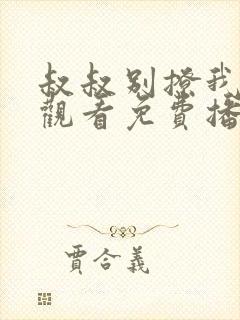 叔叔别撩我
觀看免費播
賈合義